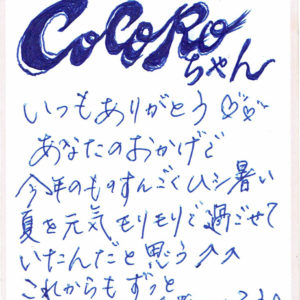 CoCoRo
ちゃん
いつもありがとう♡♡
あなたのおかげで
今年のものすんごくひどい暑い
夏を元気モリモリで過ごせて
いたんだと思う↗↗
これからもずっと